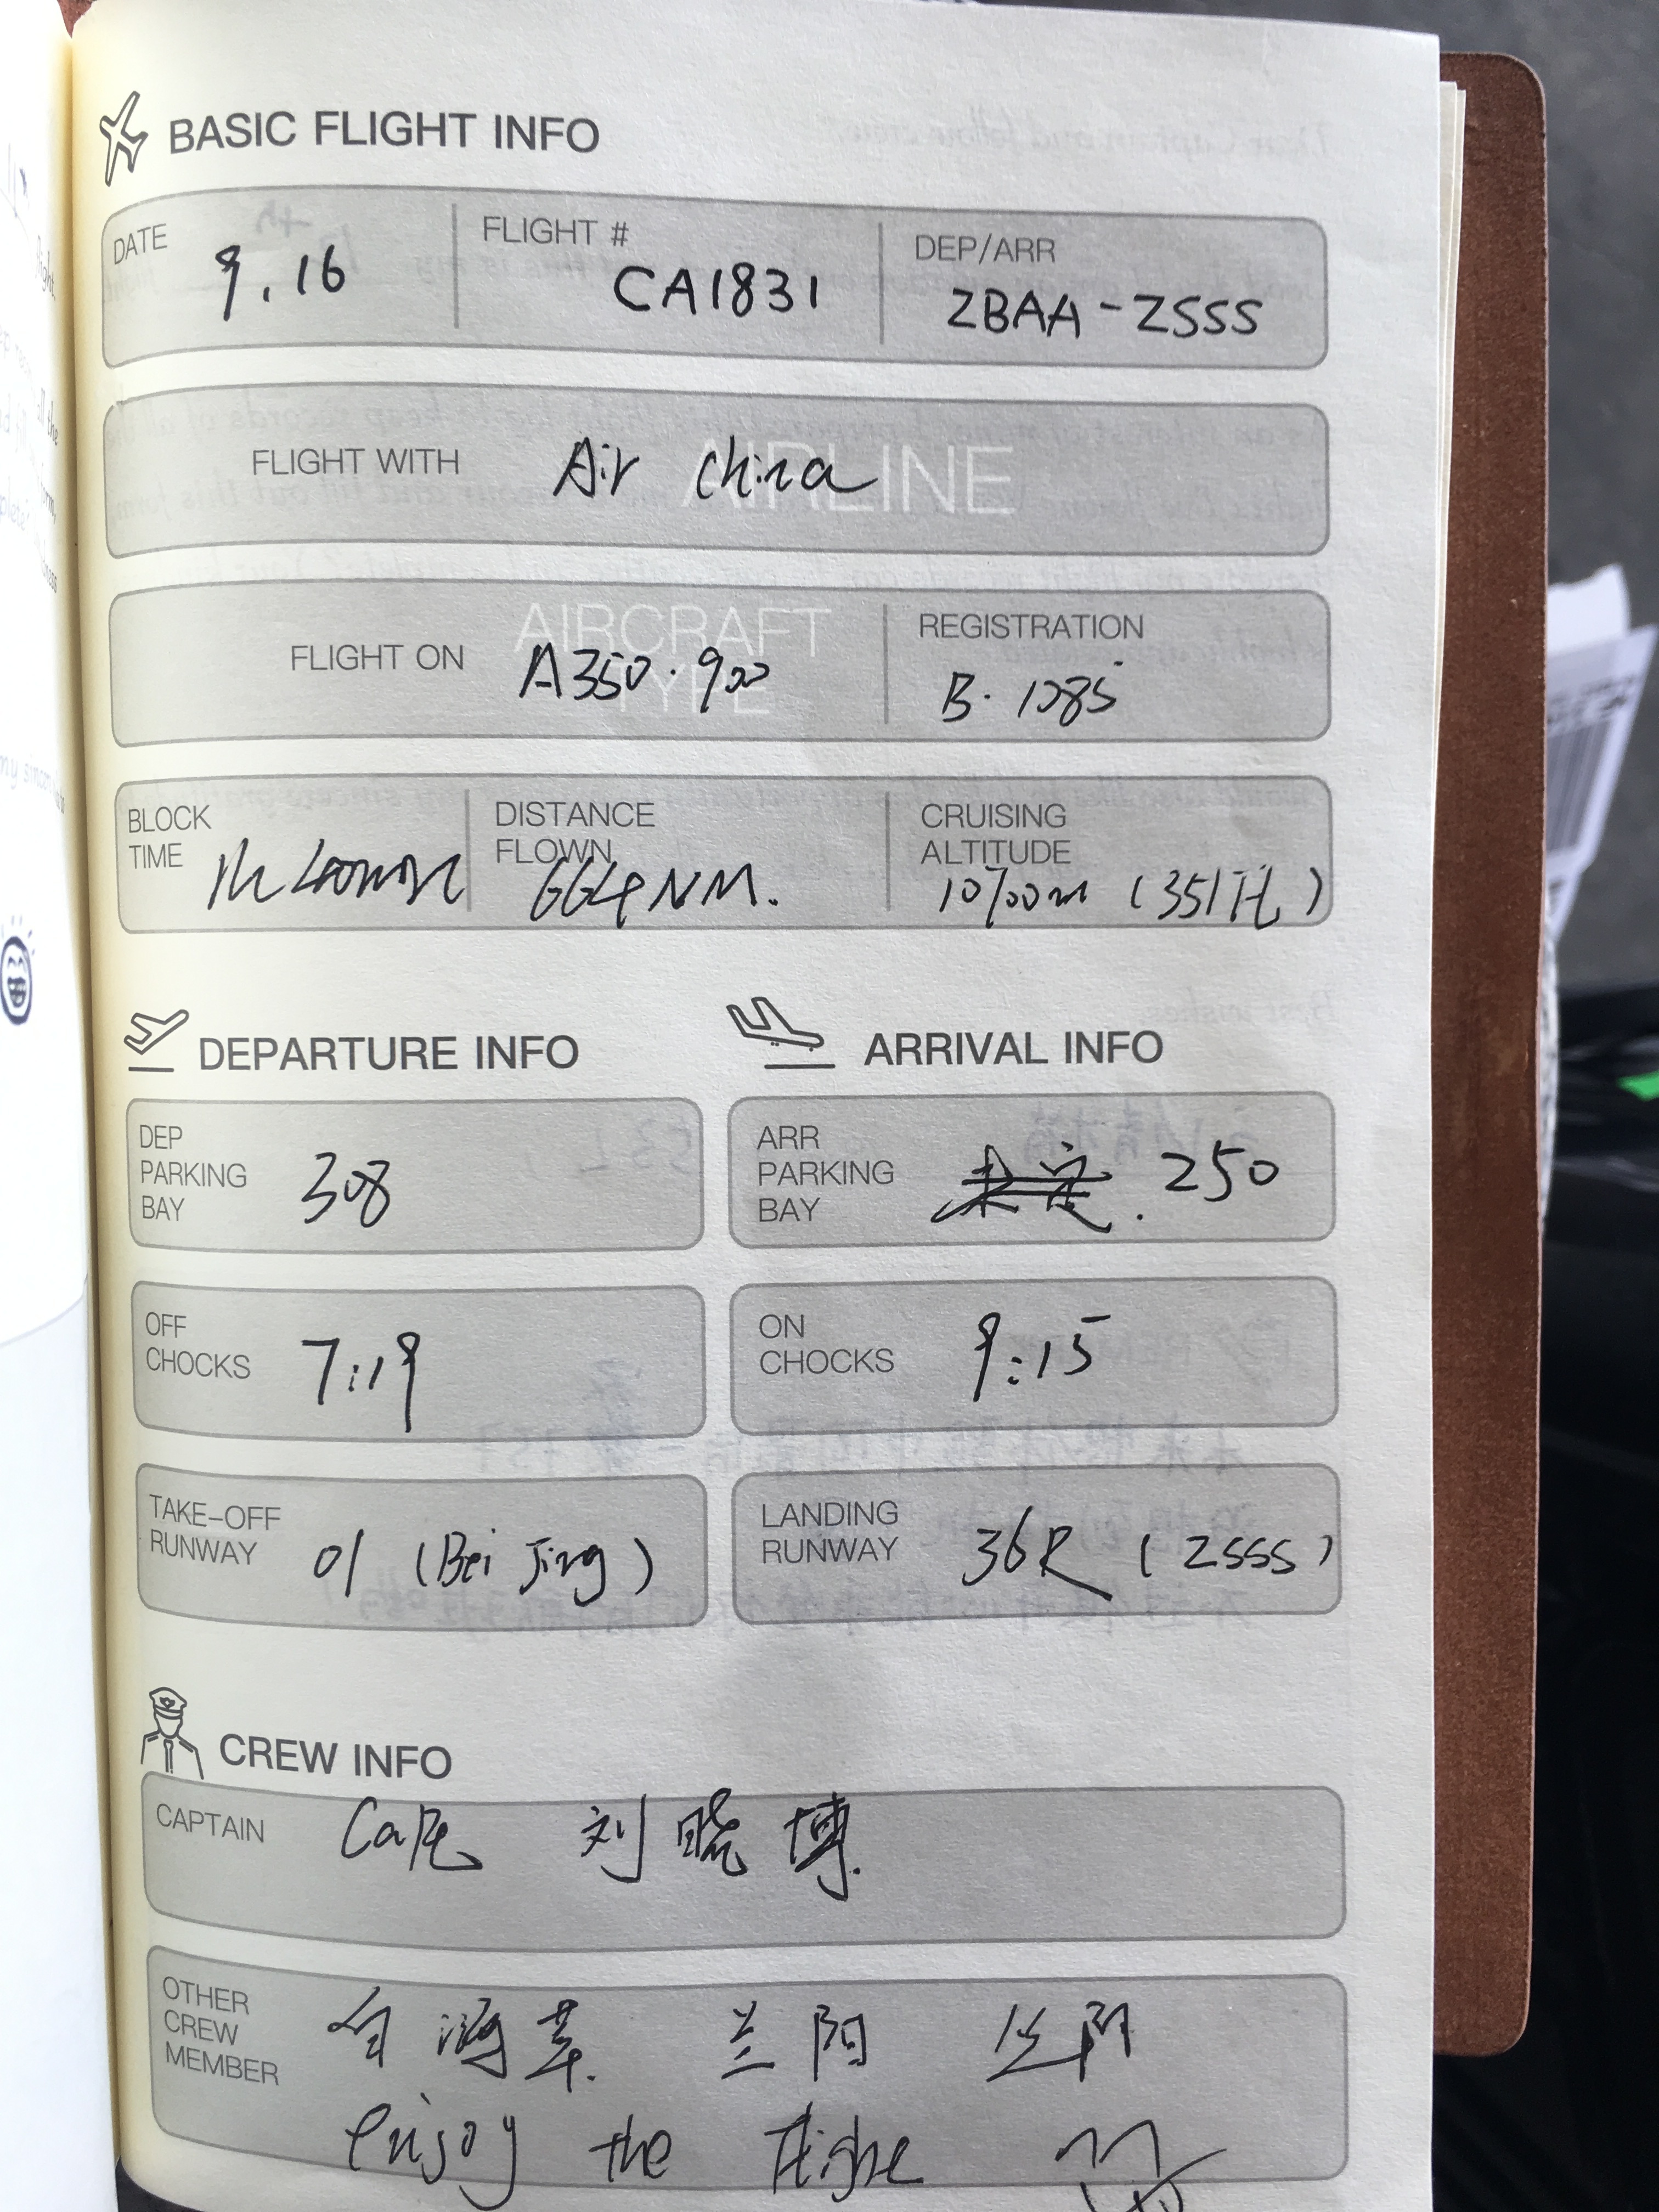 BASIC FLIGHT INFO
DATE 9.16 FLIGHT # CA1831 DEP/ARR ZBAA-ZSSS
FLIGHT WITH AIRLINE Air China
FLIGHT ON AIRCRAFT TYPE A350-900 REGISTRATION B-1085
BLOCK TIME 1h40min DISTANCE FLOWN 664NM. CRUISING ALTITUDE 10700m (351FL)
DEPARTURE INFO ARRIVAL INFO
DEP PARKING BAY 308 ARR PARKING BAY 未定. 250
OFF CHOCKS 7:19 ON CHOCKS 9:15
TAKE-OFF RUNWAY 01 (Bei Jing) LANDING RUNWAY 36R (ZSSS)
CREW INFO
CAPTAIN 刘晓博
OTHER CREW MEMBER 兰阳
enjoy the flight